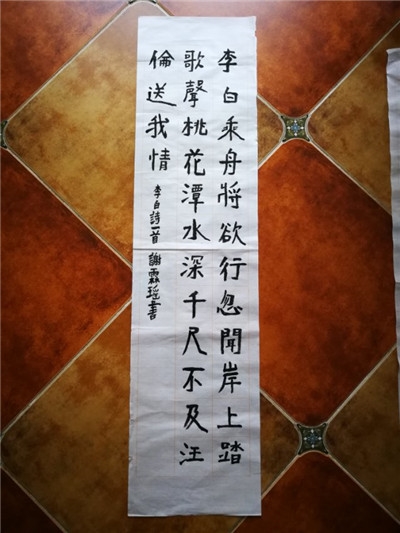 李白乘舟將欲行忽聞岸上踏
歌聲桃花潭水深千尺不及汪
倫送我情
李白詩一首 謝霖瑶書